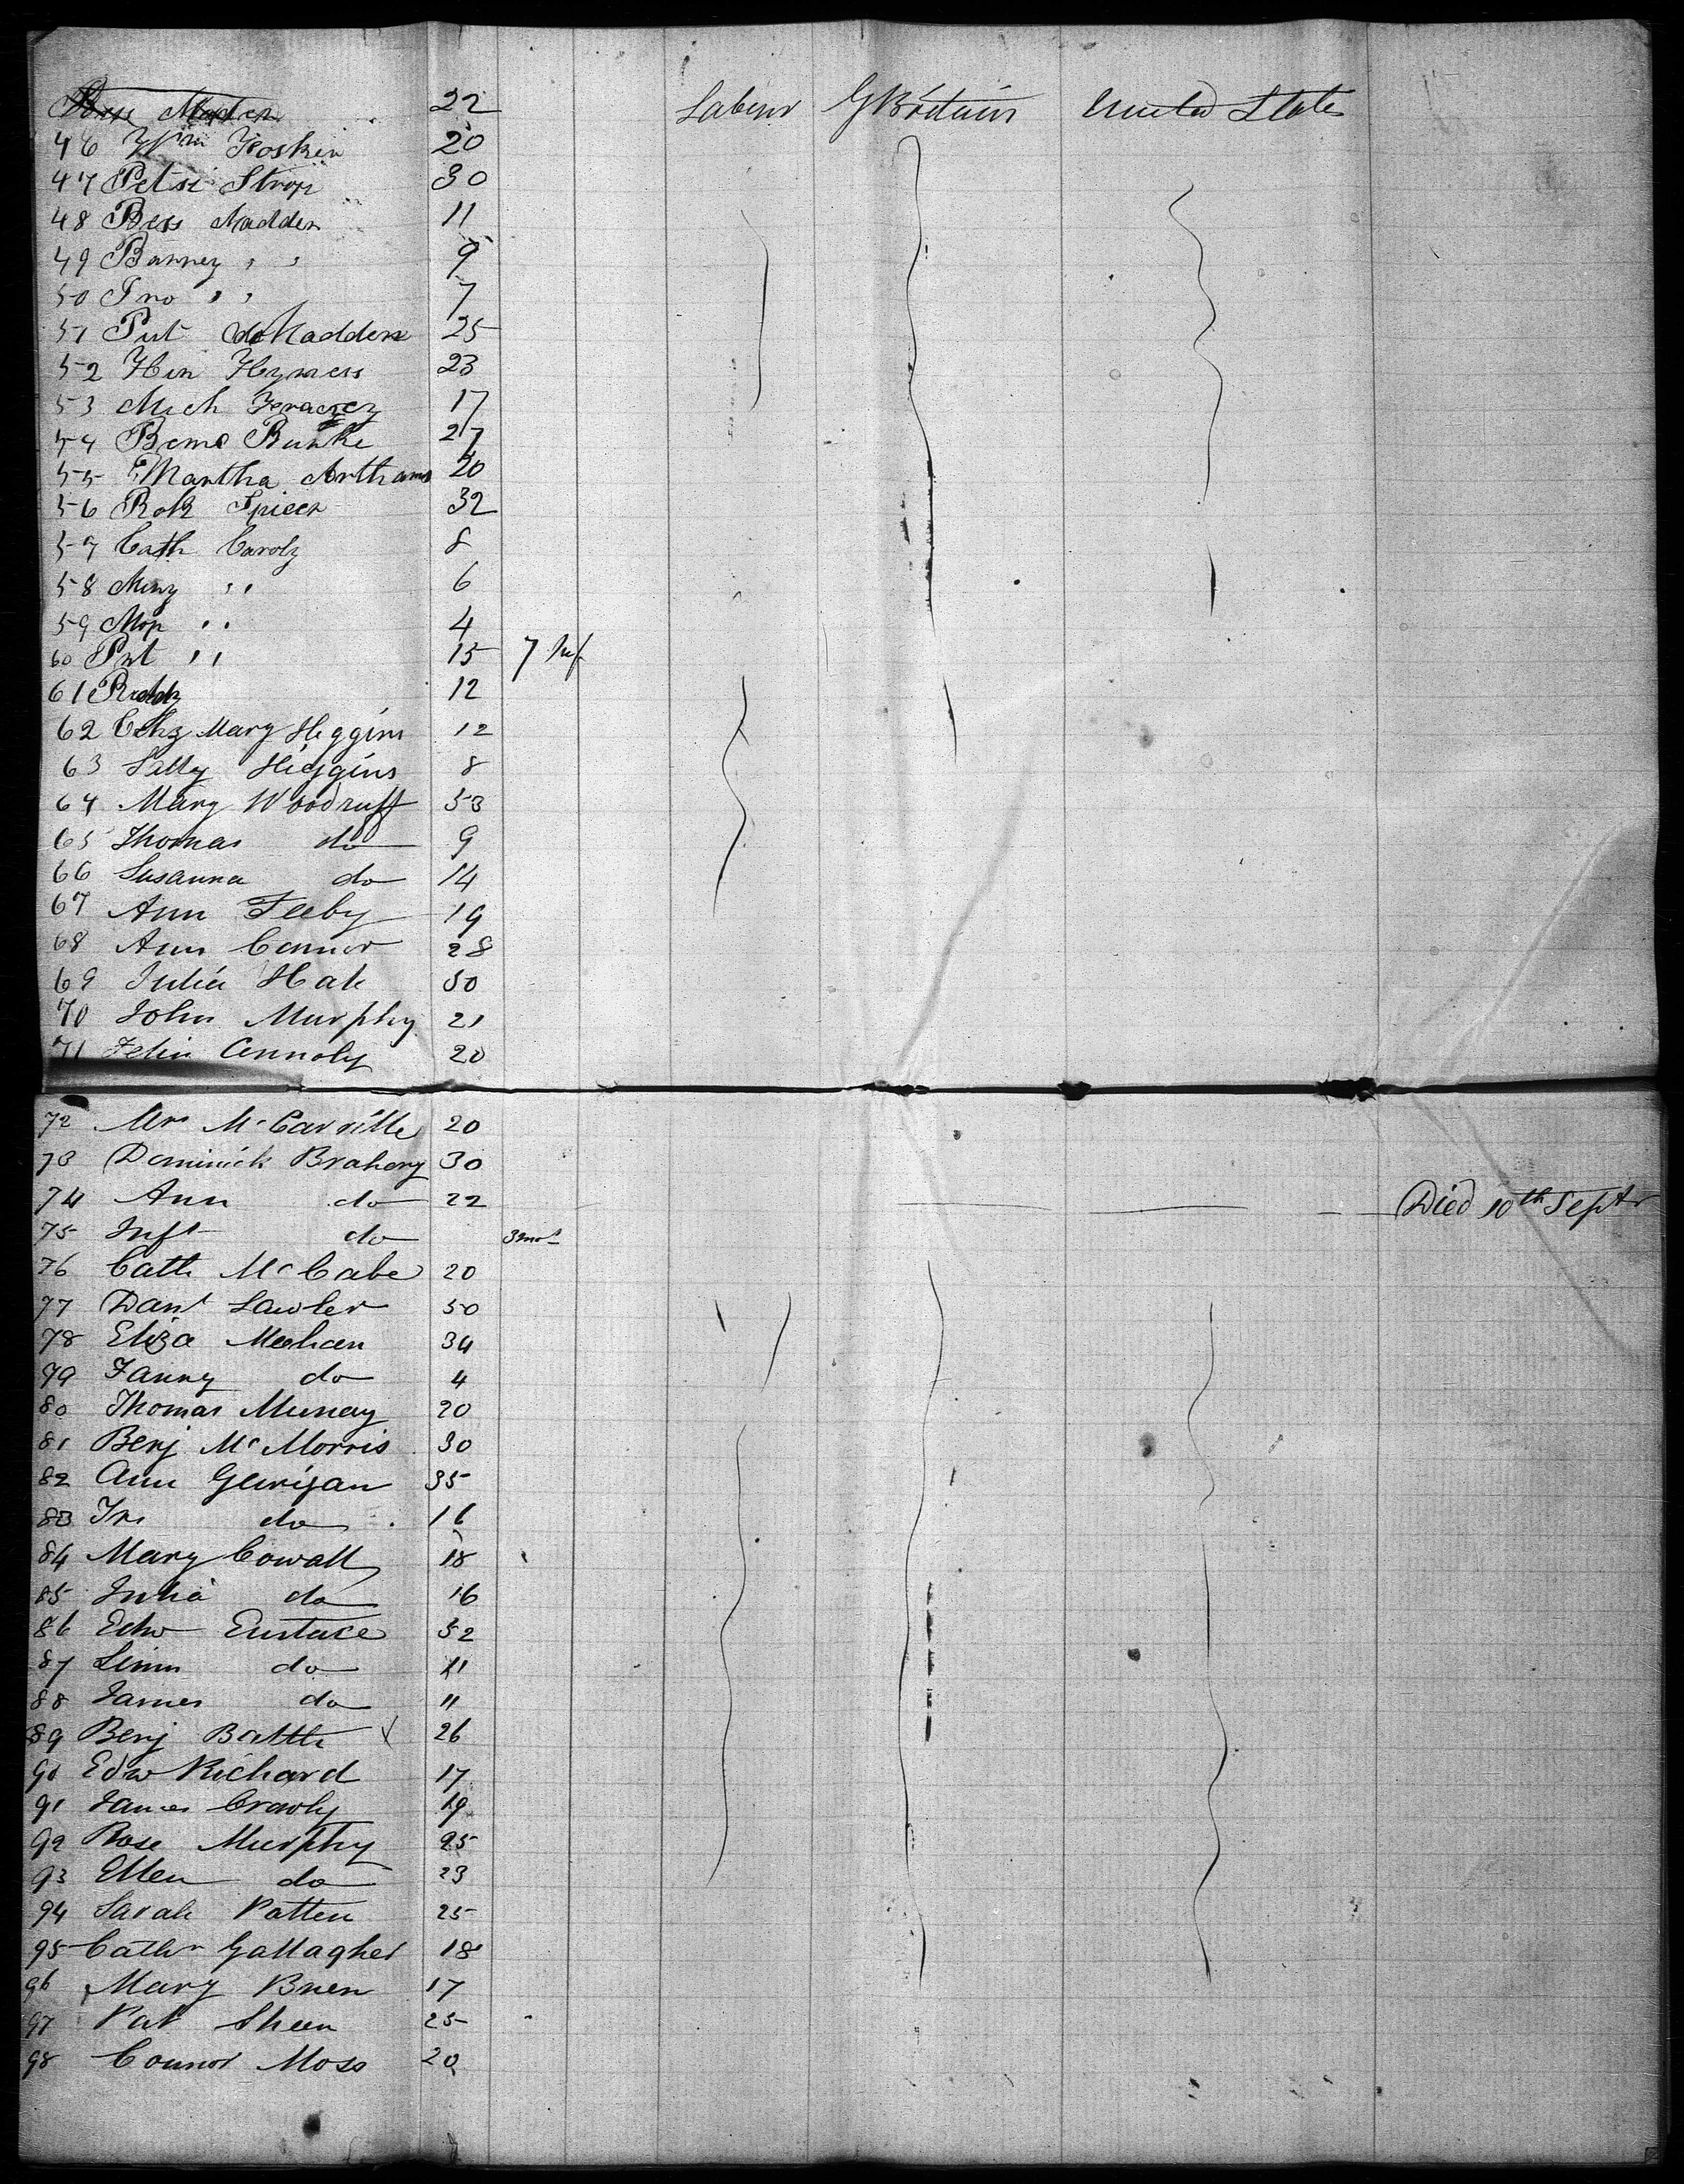 Madden 22 Labour G Britain United States
46 Wm Hoskin 20
47 Petsi Strop 30
48 Bess Madden 11
49 Barney " " 9
50 Jno " " 7
51 Pat Madden 25
52 Hen Hyness 23
53 Mich 17
54 Burke 27
55 Martha Arthans 20
56 Robt Spicer 32
57 Cath Caroly 8
58 " " 6
59 " " 4
60 Pat " " 15 7 Inf
61 12
62 Mary Higgins 12
63 Higgins 8
64 Mary Woodruff 53
65 Thomas do 9
66 Susanna do 14
67 Ann Feeby 19
68 Ann Connor 28
69 Julia Hale 50
70 John Murphy 21
71 Connoly 20
72 Mr McCarville 20
73 Dominick Brahery 30
74 Ann do 22 Died 10th Septr
75 Inft do 3 mos
76 Cath McCabe 20
77 Danl Lawler 50
78 Eliza Meehan 34
79 Fanny do 4
80 Thomas Murray 20
81 Benj McMorris 30
82 Ann Gerrigan 35
83 do 16
84 Mary Cowall 18
85 Julia do 16
86 Edw Eustace 52
87 do 11
88 James do 11
89 Benj Battle x 26
90 Edw Richard 17
91 James Crawly 19
92 Rose Murphy 25
93 Ellen do 23
94 Sarah Patten 25
95 Cathr Gallagher 18
96 Mary Brien 17
97 Pat Sheen 25
98 Connor Moss 20